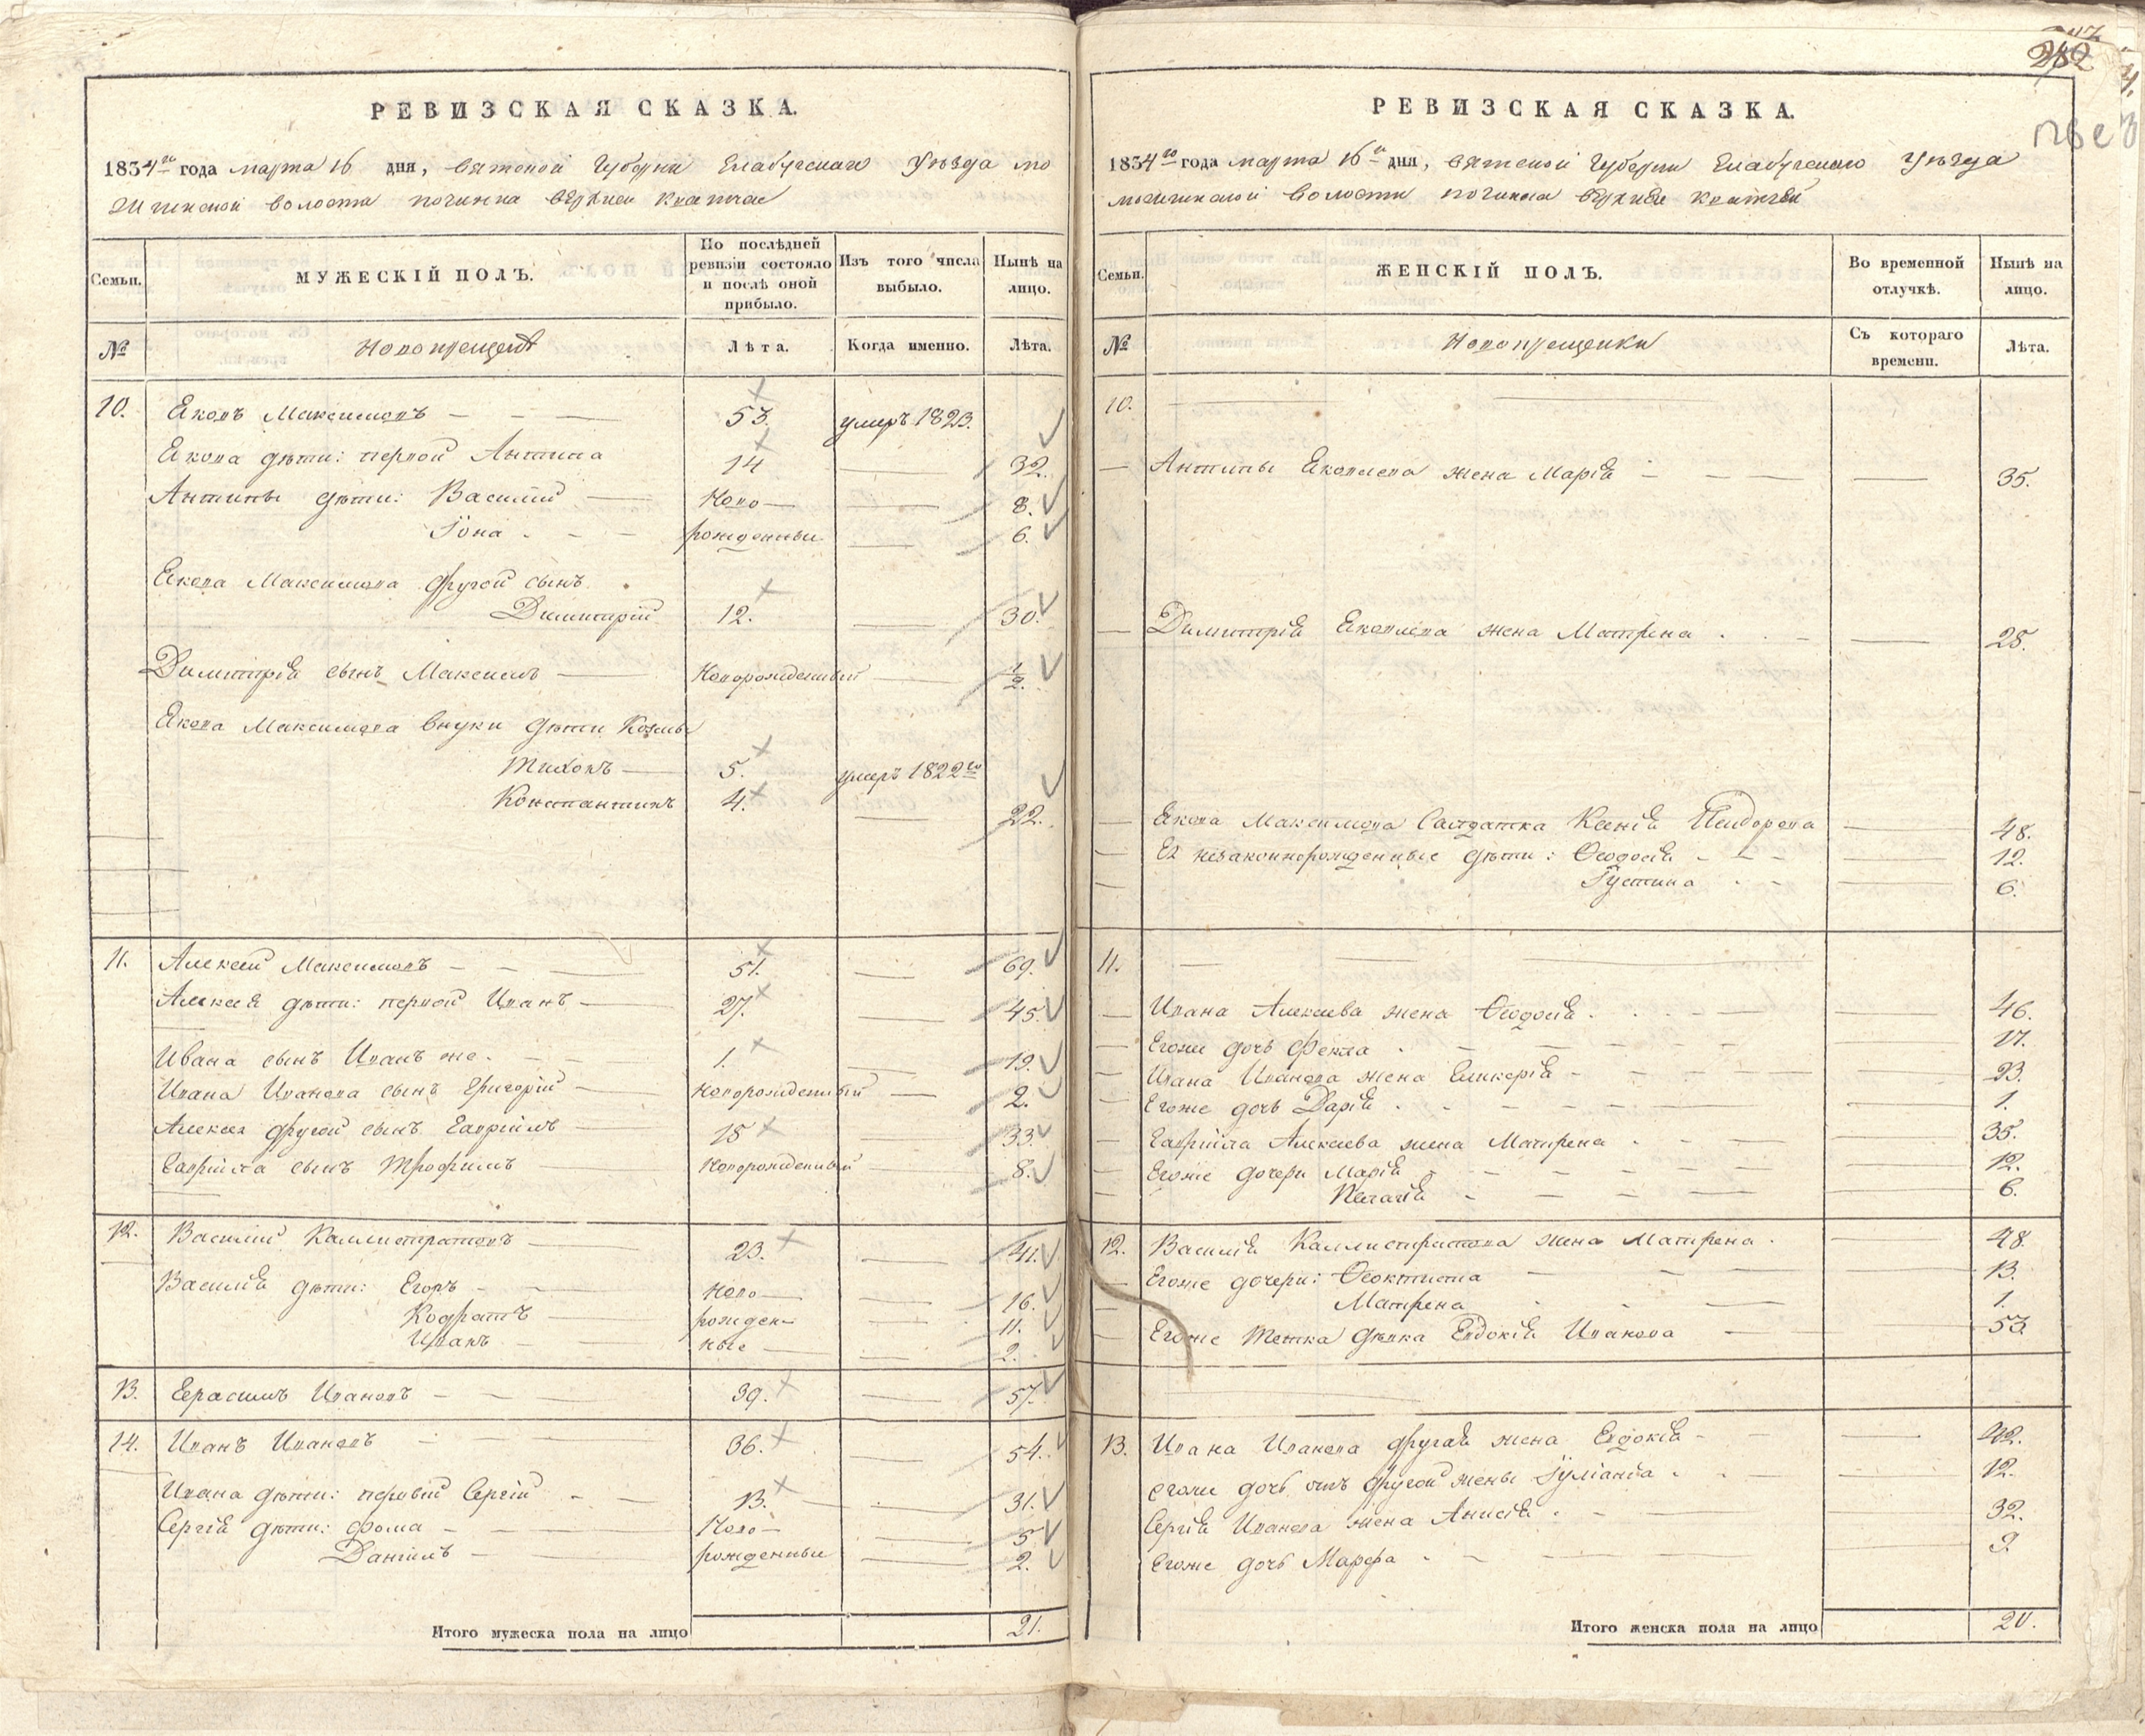 282
РЕВИЗСКАЯ СКАЗКА.
1834го года марта 16 дня, Вятской Губерніи Елабугскаго Уѣзда Мо
жгинской волости починка верхней
Семьи.
МУЖЕСКІЙ ПОЛЪ.
По послѣдней ревизіи состояло и послѣ оной прибыло.
Изъ того числа выбыло.
Нынѣ на лицо.
№
Новокрещены
Лѣта.
Когда именно.
Лѣта.
10. Яковъ Максимовъ 53. умеръ 1823.
Якова дѣти: первой Антипа 14 32.
Антипы дѣти: Василій Ново 8.
Іона рожденныи 6.
Якова Максимова другой сынъ
Димитрій 12. 30.
Димитрія сынъ Максимъ Новорожденный 1/2.
Якова Максимова внуки дѣти Козмы
Тихонъ 5. умеръ 1822го
Константинъ 4. 22.
11. Алексей Максимовъ 51. 69.
Алексея дѣти: первой Иванъ 27. 45.
Ивана сынъ Иванъ же. 1. 19.
Ивана Иванова сынъ Григорій Новорожденный 2.
Алексея другой сынъ Гавріилъ 15 33.
Гавріила сынъ Трофимъ Новорожденный 8.
12. Василій Каллистратовъ 23. 41.
Василія дѣти: Егоръ Ново 16.
Кодратъ рожден 11.
Иванъ ные 2.
13. Герасимъ Ивановъ 39. 57.
14. Иванъ Ивановъ 36. 54.
Ивана дѣти: первый Сергій 13. 31.
Сергія дѣти: Фома Ново 5
Даніилъ рожденныи 2.
Итого мужеска пола на лицо 21.
РЕВИЗСКАЯ СКАЗКА.
1834го года марта 16го дня, Вятской Губерніи Елабугскаго Уѣзда
Можгинской волости починка верхней
Семьи.
ЖЕНСКІЙ ПОЛЪ.
Во временной отлучкѣ.
Нынѣ на лицо.
№
Новокрещенки
Съ котораго времени.
Лѣта.
10.
Антипы Яковлева жена Марія 35.
Димитрія Яковлева жена Матрена 25.
Якова Максимова Салдатка Ксенія 48.
Ея незаконнорожденные дѣти: Ѳеодосія 12.
Іустина 6.
11.
Ивана Алексеева жена Ѳеодосія. 46.
Егоже дочь Фекла 17.
Ивана Иванова жена Гликерія 23.
Егоже дочь Дарія 1.
Гавріила Алексеева жена Матрена 35.
Егоже дочери Марія 12.
Пелагія 6.
12. Василія Каллистратова жена Матрена. 48.
Егоже дочери: Ѳеоктиста 13.
Матрена 1.
Егоже тетка дѣвка Евдокія Иванова 53
13. Ивана Иванова другая жена Евдокія 42.
егоже дочь отъ другой жены Іуліанія 12.
Сергія Иванова жена Анисія. 32.
Егоже дочь Марфа 9.
Итого женска пола на лицо 20.